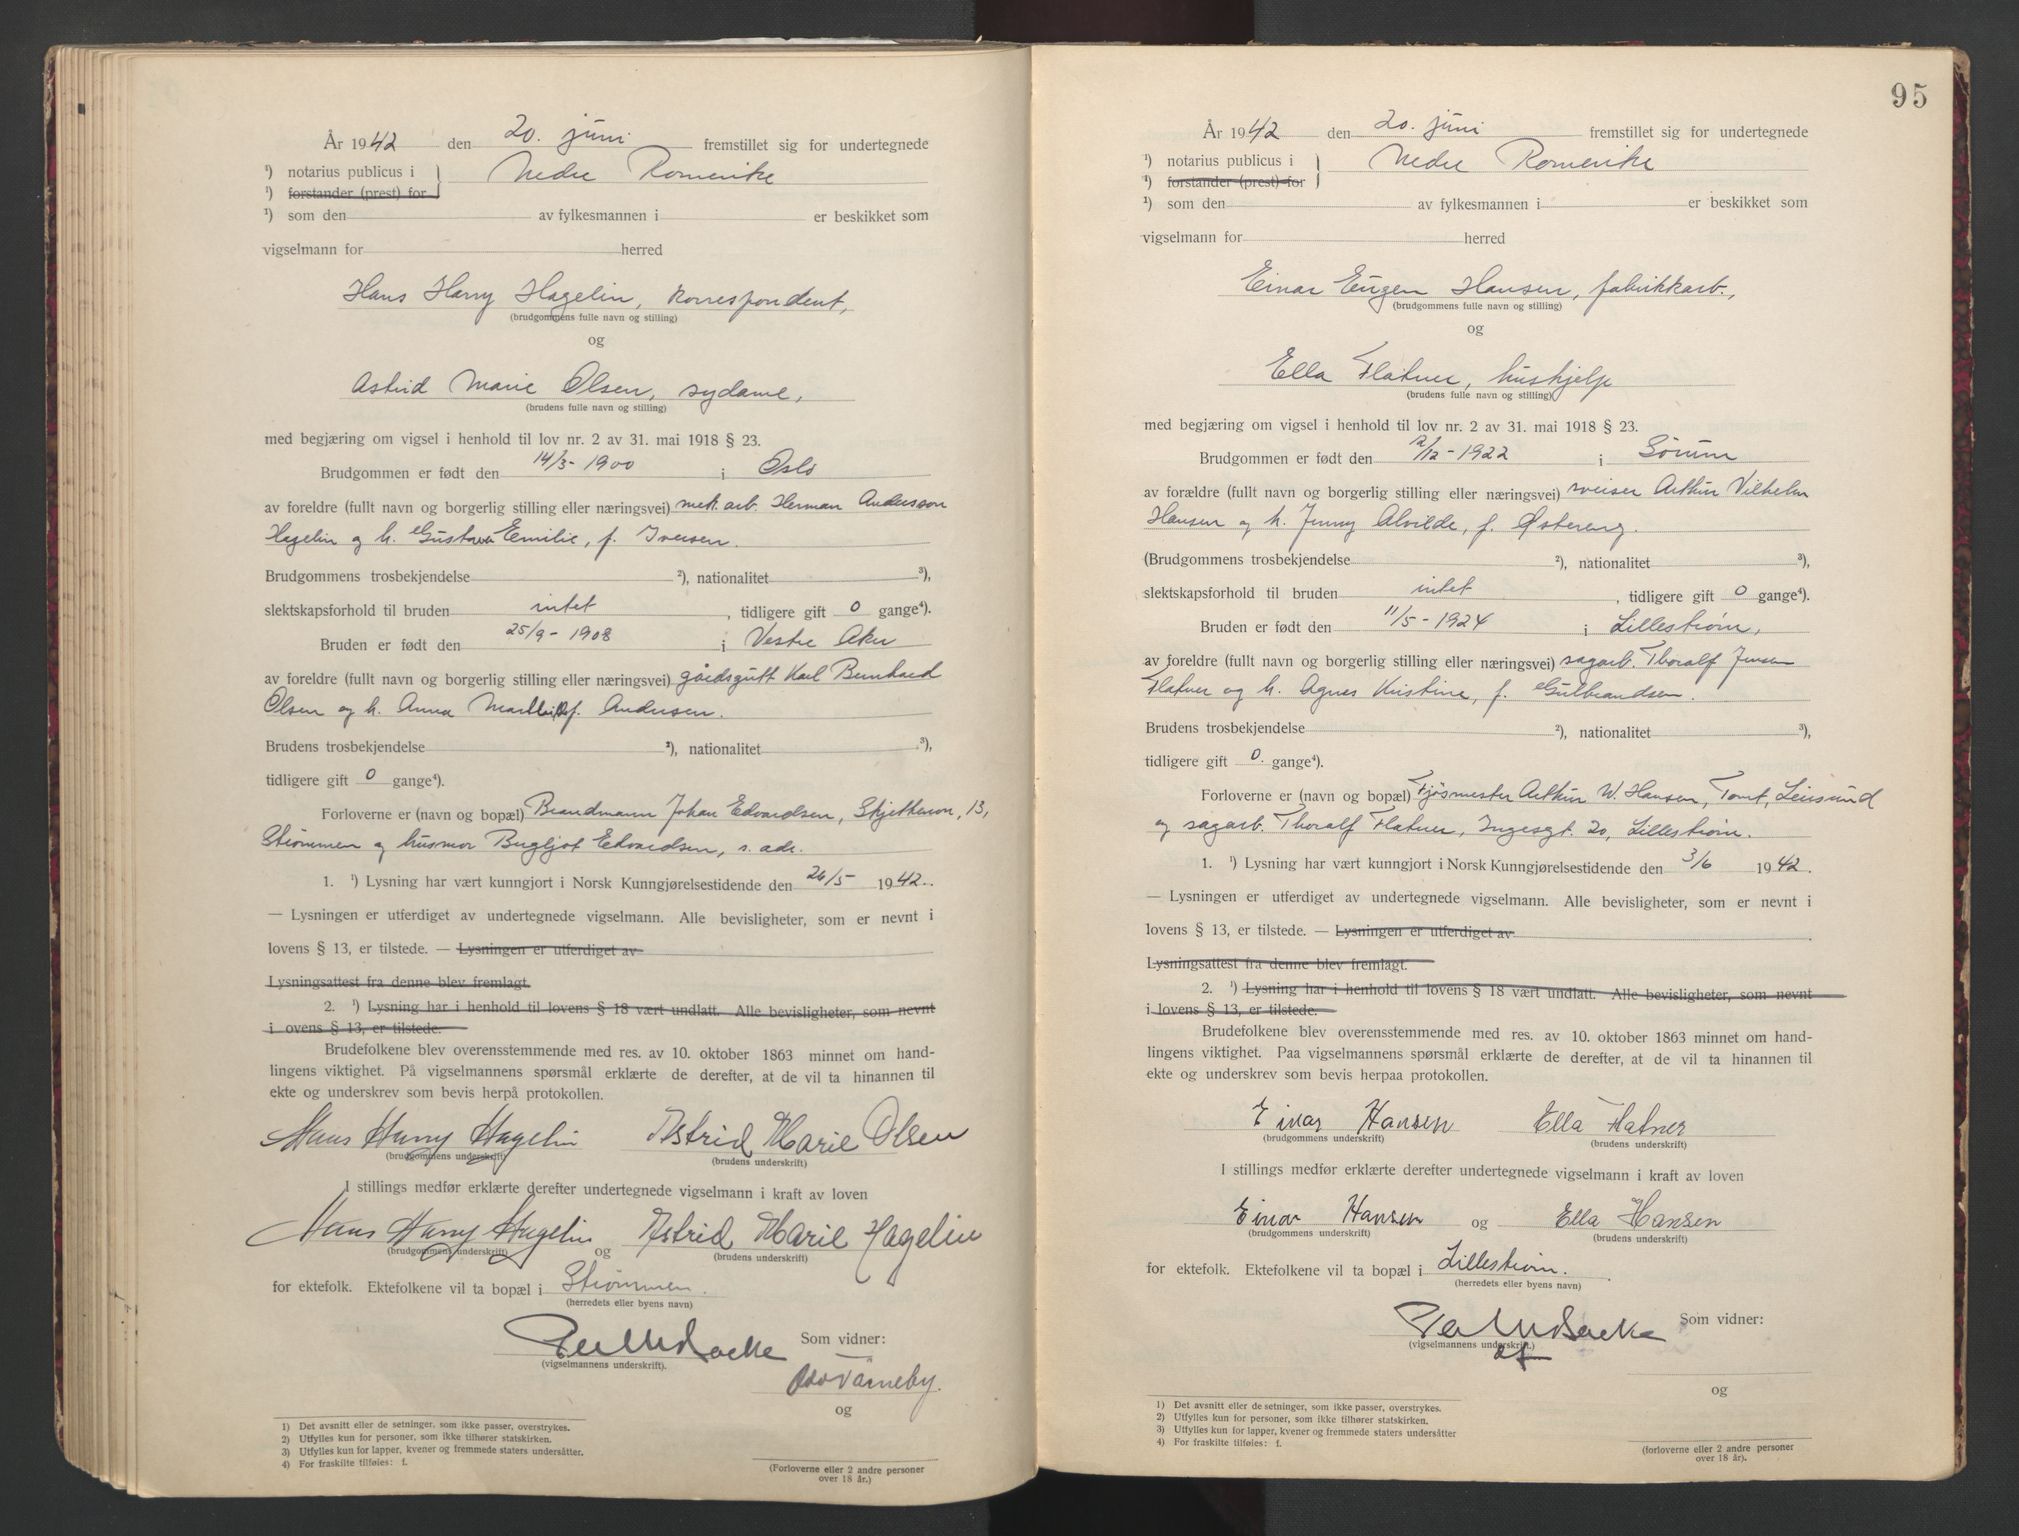 År 1942 den 20. juni fremstillet sig for undertegnede
¹) notarius publicus i } Nedre Romerike
¹) forstander (prest) for
¹) som den av fylkesmannen i er beskikket som
vigselmann for herred
Hans Harry Hagelin, korrespondent,
(brudgommens fulle navn og stilling)
og
Astrid Marie Olsen, sydame,
(brudens fulle navn og stilling)
med begjæring om vigsel i henhold til lov nr. 2 av 31. mai 1918 § 23.
Brudgommen er født den 14/3-1900 i Oslo
av foreldre (fullt navn og borgerlig stilling eller næringsvei) mek. arb. Herman Andersson
Hagelin og h. Gustava Emilie, f. Iversen.
Brudgommens trosbekjendelse ²), nationalitet ³),
slektskapsforhold til bruden intet, tidligere gift 0 gange⁴).
Bruden er født den 25/9-1908 i Vestre Aker
av foreldre (fullt navn og borgerlig stilling eller næringsvei) gårdsgutt Karl Bernhard
Olsen og h. Anna f. Andersen.
Brudens trosbekjendelse ²), nationalitet ³),
tidligere gift 0 gange⁴).
Forloverne er (navn og bopæl) Brandmann Johan Edvardsen, 13,
Strømmen og husmor Bergljot Edvardsen, s. adr.
1. ¹) Lysning har vært kunngjort i Norsk Kunngjørelsestidende den 26/5 1942.
— Lysningen er utferdiget av undertegnede vigselmann. Alle bevisligheter, som er nevnt i
lovens § 13, er tilstede. — Lysningen er utferdiget av
Lysningsattest fra denne blev fremlagt.
2. ¹) Lysning har i henhold til lovens § 18 vært undlatt. Alle bevisligheter, som nevnt
i ovens § 13, er tilstede.
Brudefolkene blev overensstemmende med res. av 10. oktober 1863 minnet om hand-
lingens viktighet. På vigselmannens spørsmål erklærte de derefter, at de vil ta hinannen til
ekte og underskrev som bevis herpå protokollen.
Hans Harry Hagelin Astrid Marie Olsen
(brudgommens underskrift) (brudens underskrift)
I stillings medfør erklærte derefter undertegnede vigselmann i kraft av loven
Hans Harry Hagelin og Astrid Marie Hagelin
(brudgommens underskrift) (brudens underskrift)
for ektefolk. Ektefolkene vil ta bopæl i Strømmen.
(herredets eller byens navn)
Som vidner:
(vigselmannens underskrift).
og
1) Det avsnitt eller de setninger, som ikke passer, overstrykes.
2) Utfylles kun for personer, som ikke tilhører statskirken.
3) Utfylles kun for lapper, kvener og fremmede staters undersåtter.
4) For fraskilte tilføies: f.
(Forloverne eller 2 andre personer
over 18 år.)
95
År 1942 den 20. juni fremstillet sig for undertegnede
¹) notarius publicus i } Nedre Romerike
¹) forstander (prest) for
¹) som den av fylkesmannen i er beskikket som
vigselmann for herred
Einar Eugen Hansen, fabrikkarb.,
(brudgommens fulle navn og stilling)
og
Ella Flatner, hushjelp
(brudens fulle navn og stilling)
med begjæring om vigsel i henhold til lov nr. 2 av 31. mai 1918 § 23.
Brudgommen er født den /12-1922 i Sørum
av forældre (fullt navn og borgerlig stilling eller næringsvei) sveiser Arthur Vilhelm
Hansen og h. Jenny Alvilde, f. Østereng.
(Brudgommens trosbekjendelse ²), nationalitet ³),
slektskapsforhold til bruden intet, tidligere gift 0 gange⁴).
Bruden er født den 11/5-1924 i Lillestrøm,
av foreldre (fullt navn og borgerlig stilling eller næringsvei) sagarb. Thoralf Jensen
Flatner og h. Agnes Kristine, f. Gulbrandsen.
Brudens trosbekjendelse ²), nationalitet ³),
tidligere gift 0. gange⁴).
Forloverne er (navn og bopæl) Fjøsmester Arthur W. Hansen, Tomt, Leirsund
og sagarb. Thoralf Flatner, Ingesgt. 20, Lillestrøm.
1. ¹) Lysning har vært kunngjort i Norsk Kunngjørelsestidende den 3/6 1942.
— Lysningen er utferdiget av undertegnede vigselmann. Alle bevisligheter, som er nevnt i
lovens § 13, er tilstede. — Lysningen er utferdiget av
Lysningsattest fra denne blev fremlagt.
2. ¹) Lysning har i henhold til lovens § 18 vært undlatt. Alle bevisligheter, som nevnt
i lovens § 13, er tilstede.
Brudefolkene blev overensstemmende med res. av 10. oktober 1863 minnet om hand-
lingens viktighet. Paa vigselmannens spørsmål erklærte de derefter, at de vil ta hinannen til
ekte og underskrev som bevis herpaa protokollen.
Einar Hansen Ella Flatner
(brudgommens underskrift) (brudens underskrift)
I stillings medfør erklærte derefter undertegnede vigselmann i kraft av loven
Einar Hansen og Ella Hansen
(brudgommens underskrift) (brudens underskrift)
for ektefolk. Ektefolkene vil ta bopæl i Lillestrøm.
(herredets eller byens navn)
Som vidner:
(vigselmannens underskrift.)
og
1) Det avsnitt eller de setninger, som ikke passer, overstrykes.
2) Utfylles kun for personer, som ikke tilhører statskirken.
3) Utfylles kun for lapper, kvener og fremmede staters undersåtter
4) For fraskilte tilføies: f.
(forloverne eller 2 andre personer
over 18 år).